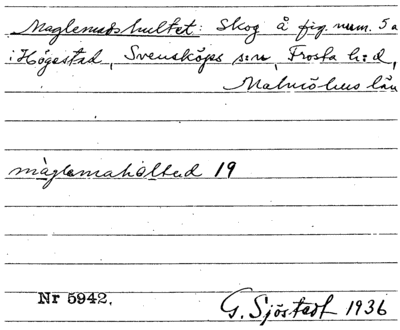 Maglemadshultet: Skog å fig. num. 5a
i Högestad, Svensköps s:n, Frosta h:d,
Malmöhus län
màglemahàlted 19
Nr 5942.
G. Sjöstedt 1936